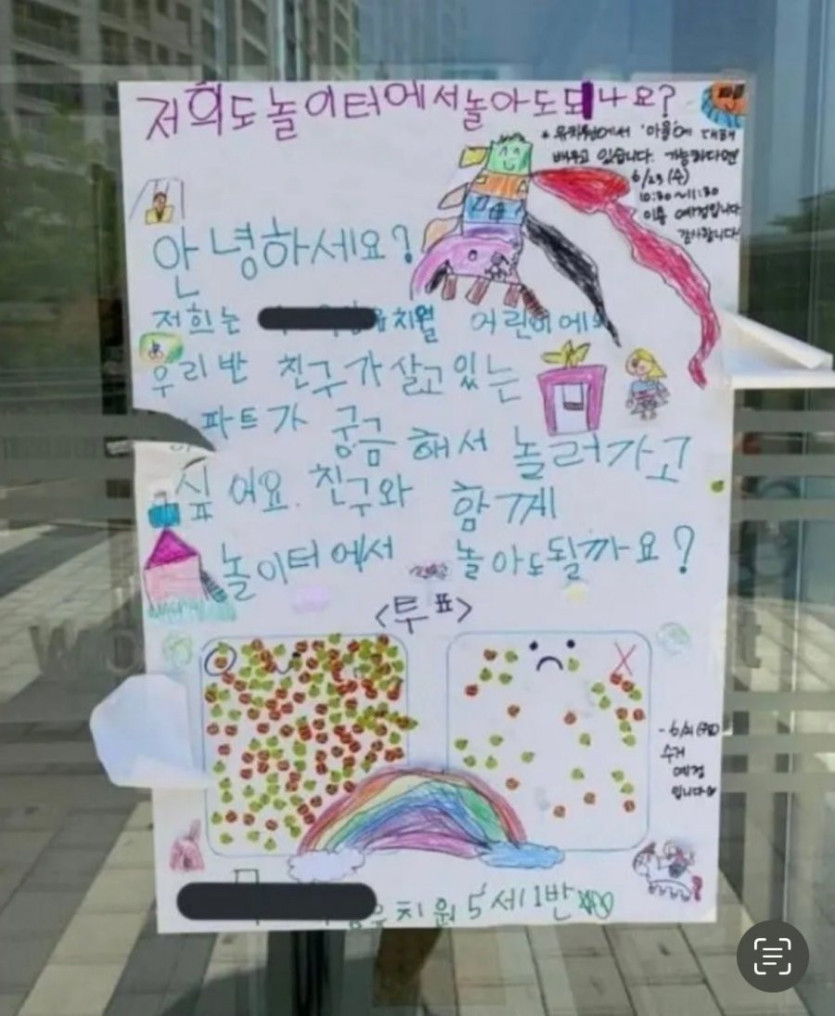 저희도 놀이터에서 놀아도 되나요?
* 유치원에서 '마을'에 대해
배우고 있습니다. 가능하다면
10:30~11:30
이용 예정입니다
감사합니다!
안녕하세요?
저희는 유치원 어린이에요
우리반 친구가 살고 있는
아파트가 궁금해서 놀러가고
싶어요. 친구와 함께
놀이터에서 놀아도될까요?
<투표>
O X
수거
예정
입니다
유치원 5세 1반